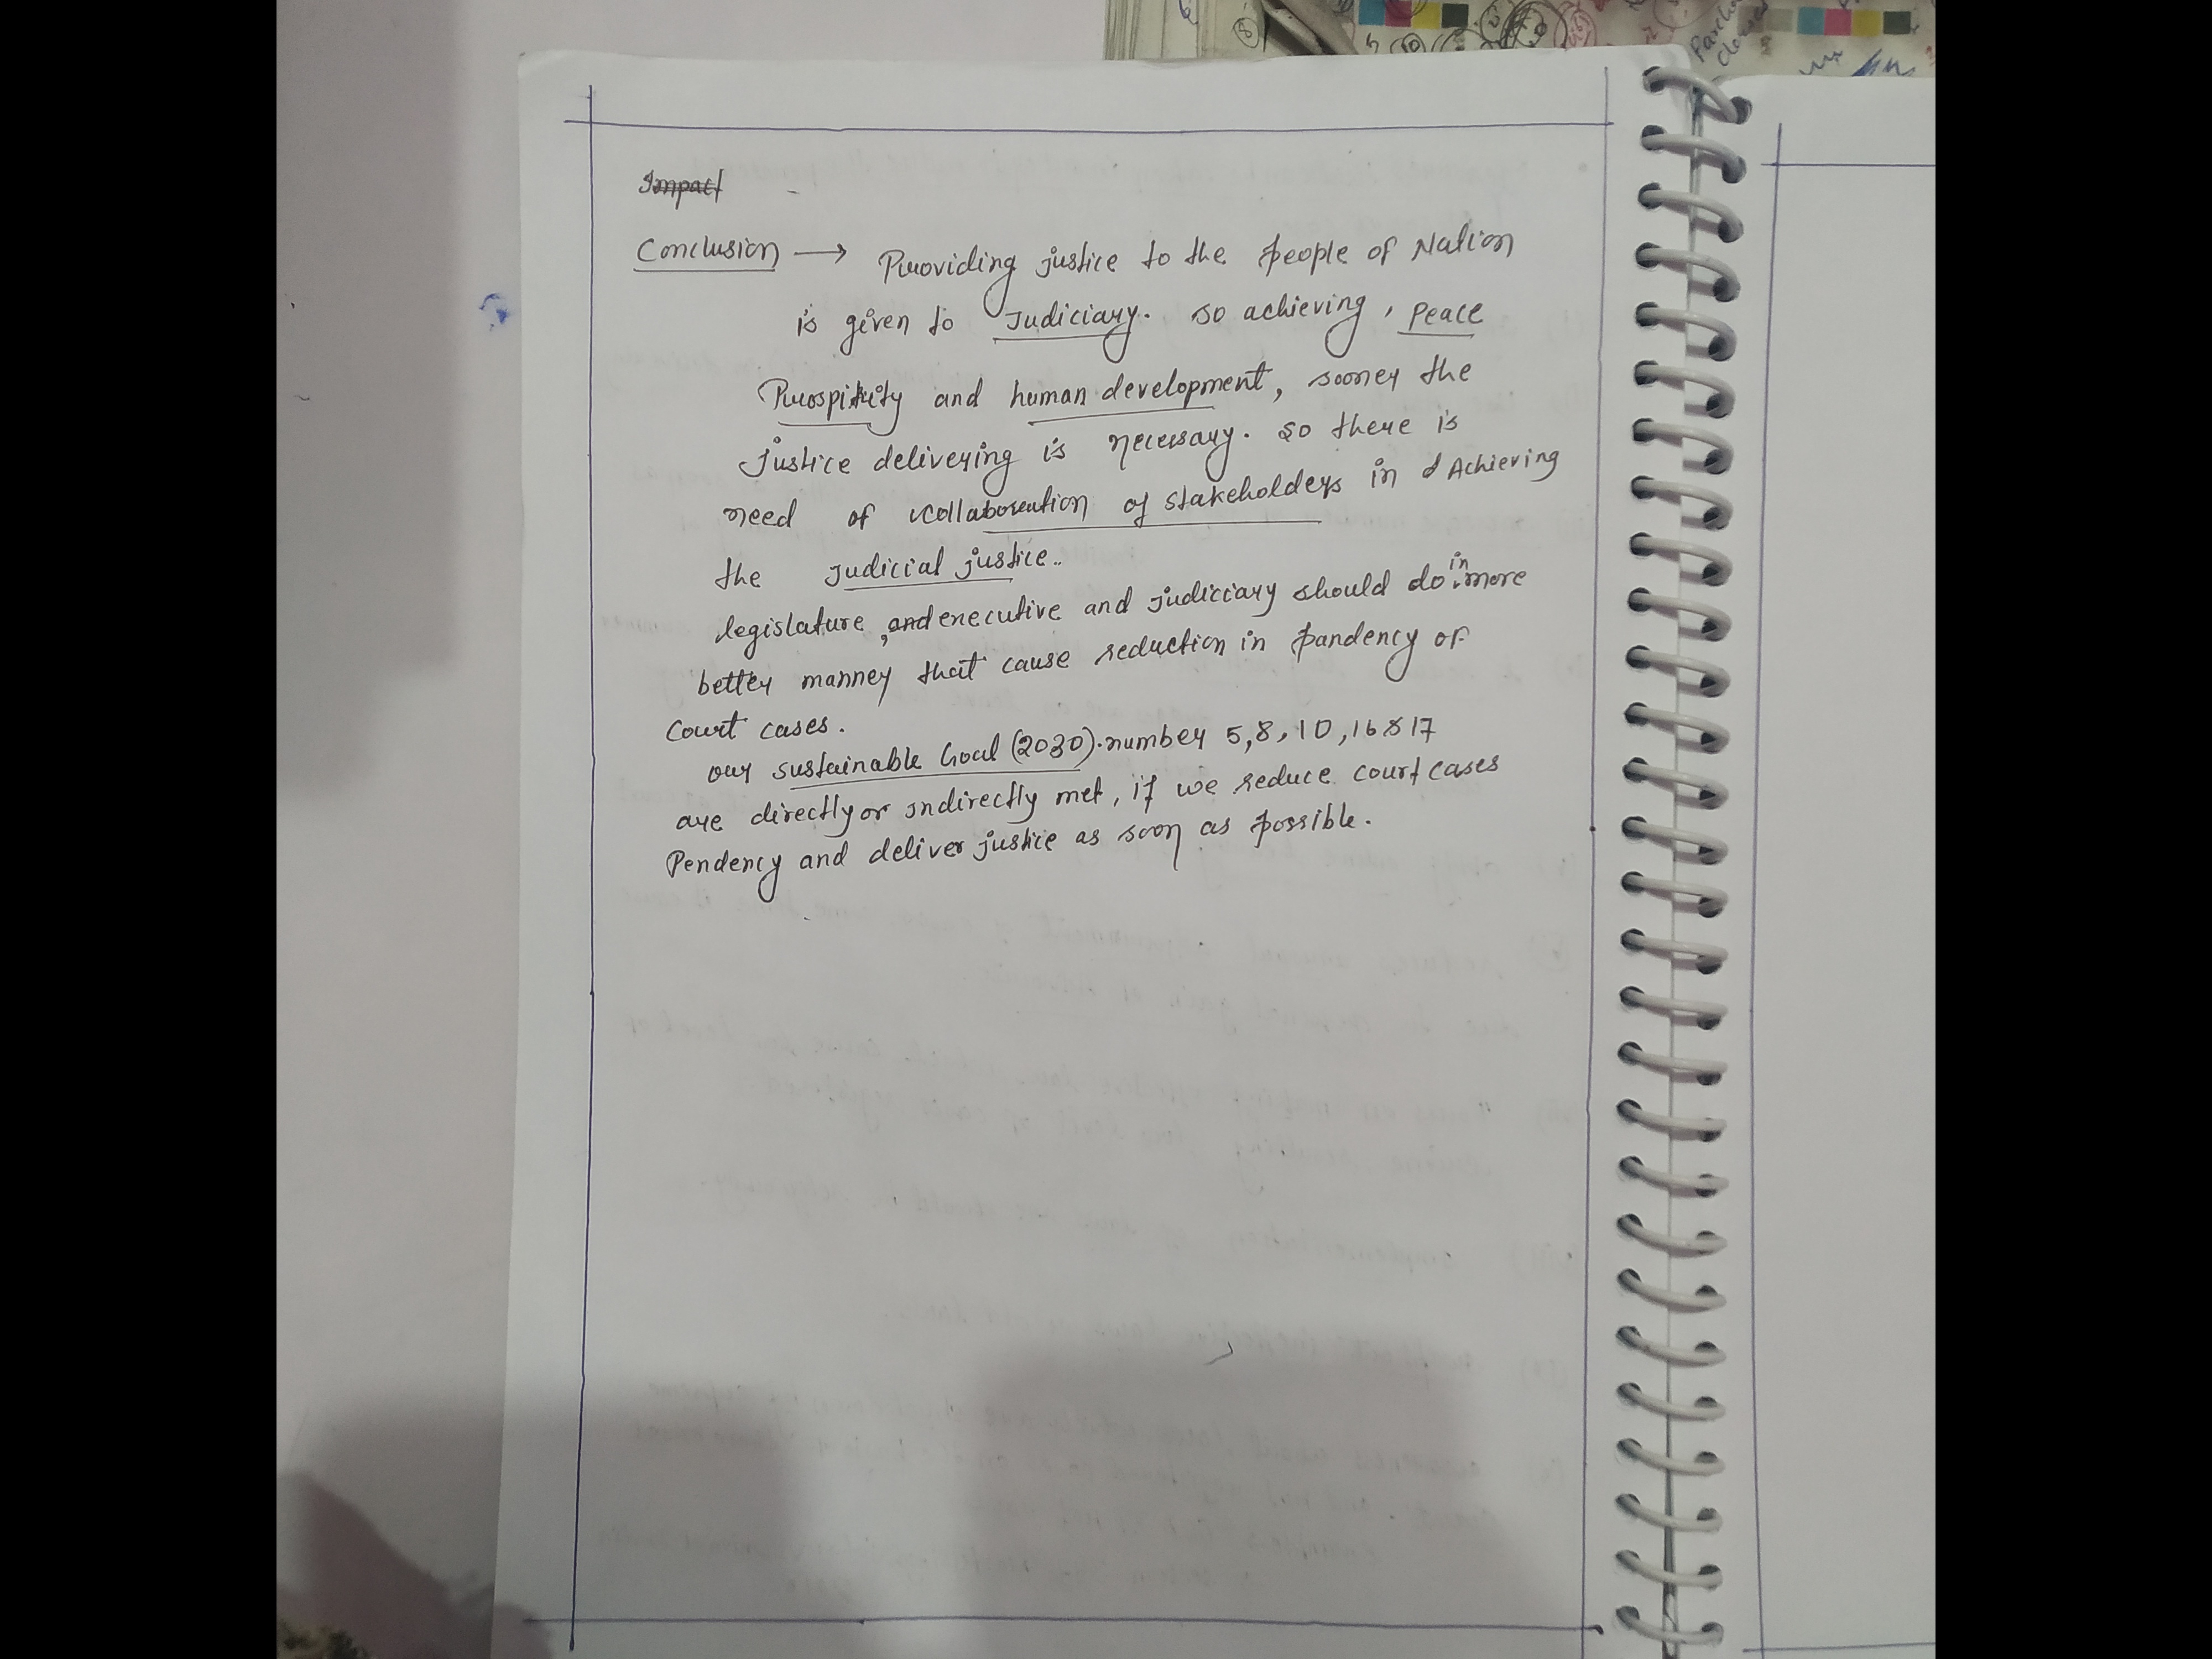 Impact
Conclusion → Providing justice to the people of Nation
is given to Judiciary. so achieving, peace
Prospirity and human development, sooner the
justice delivering is necessary. so there is
need of collaboration of stakeholders in Achieving
the judicial justice..
legislature, and executive and judiciary should do in more
better manner that cause reduction in pandency of
court cases.
our sustainable Goal (2030). number 5,8,10,16 & 17
are directly or indirectly met, if we reduce court cases
Pendency and deliver justice as soon as possible.